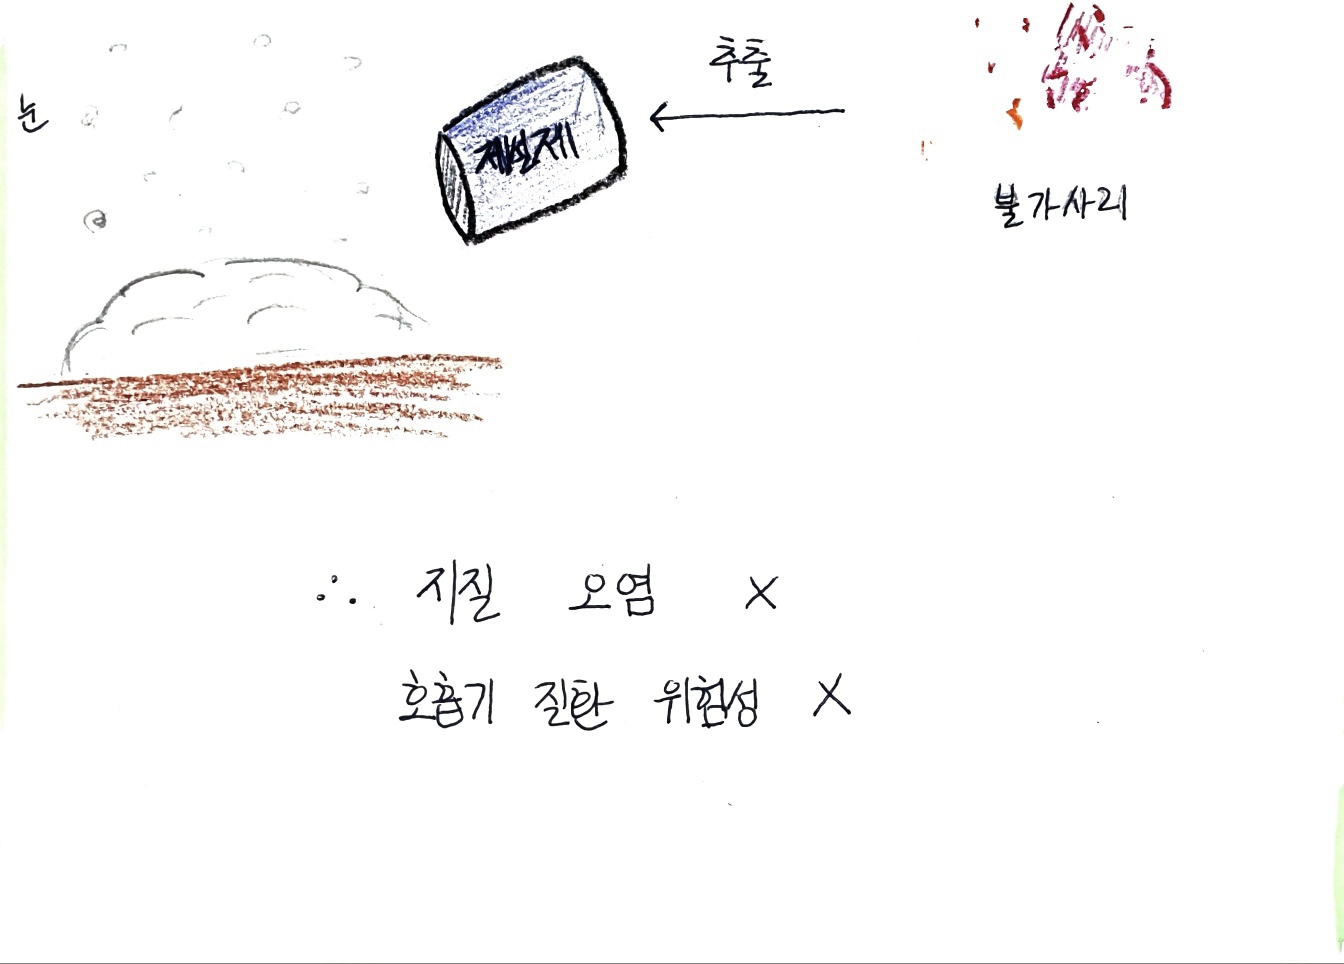 눈
제설제
추출
불가사리
∴ 지질 오염 X
호흡기 질환 위험성 X